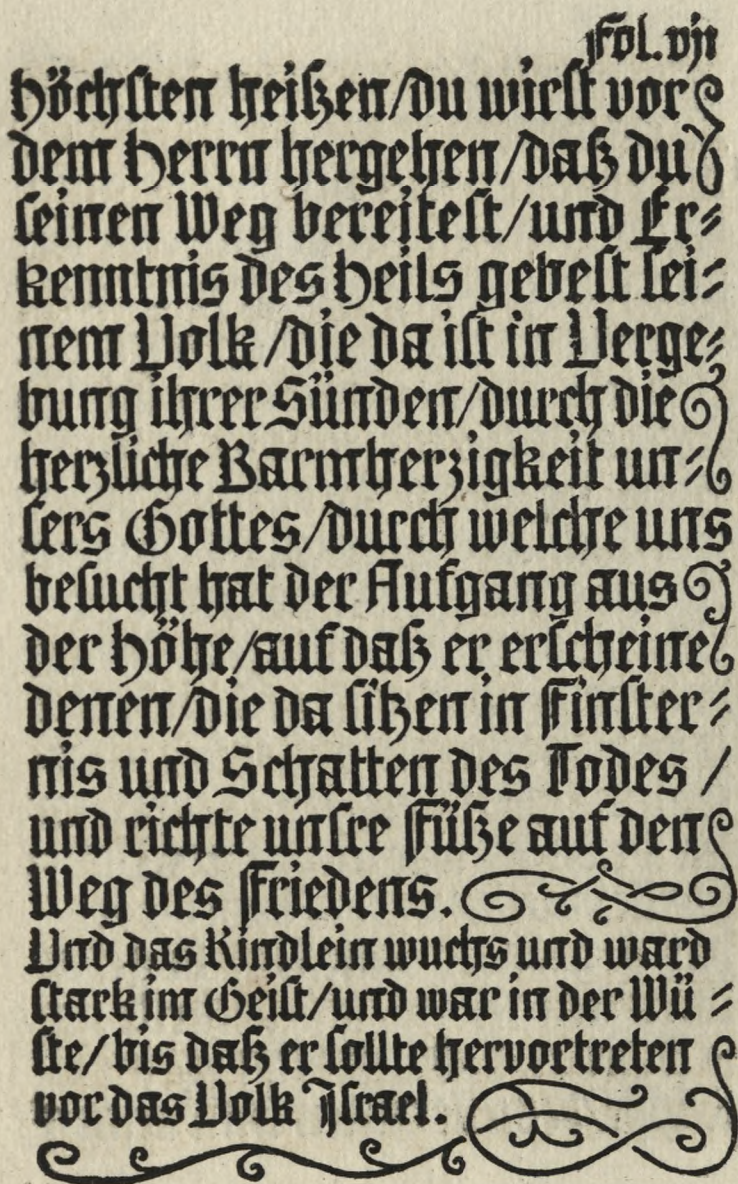 Fol. vij
Höchsten heißen/du wirst vor
dem Herrn hergehen/daß du
seinen Weg bereitest/und Er⸗
kenntnis des Heils gebest sei⸗
nem Volk/die da ist in Verge⸗
bung ihrer Sünden/durch die
herzliche Barmherzigkeit un⸗
sers Gottes/durch welche uns
besucht hat der Aufgang aus
der Höhe/auf daß er erscheine
denen/die da sitzen in Finster⸗
nis und Schatten des Todes/
und richte unsre Füße auf den
Weg des Friedens.
Und das Kindlein wuchs und ward
stark im Geist/und war in der Wü⸗
ste/bis daß er sollte hervortreten
vor das Volk Israel.